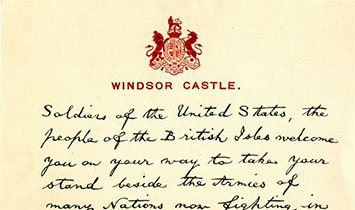 WINDSOR CASTLE.
Soldiers of the United States, the
people of the British Isles welcome
you on your way to take your
stand beside the Armies of
many Nations now fighting in